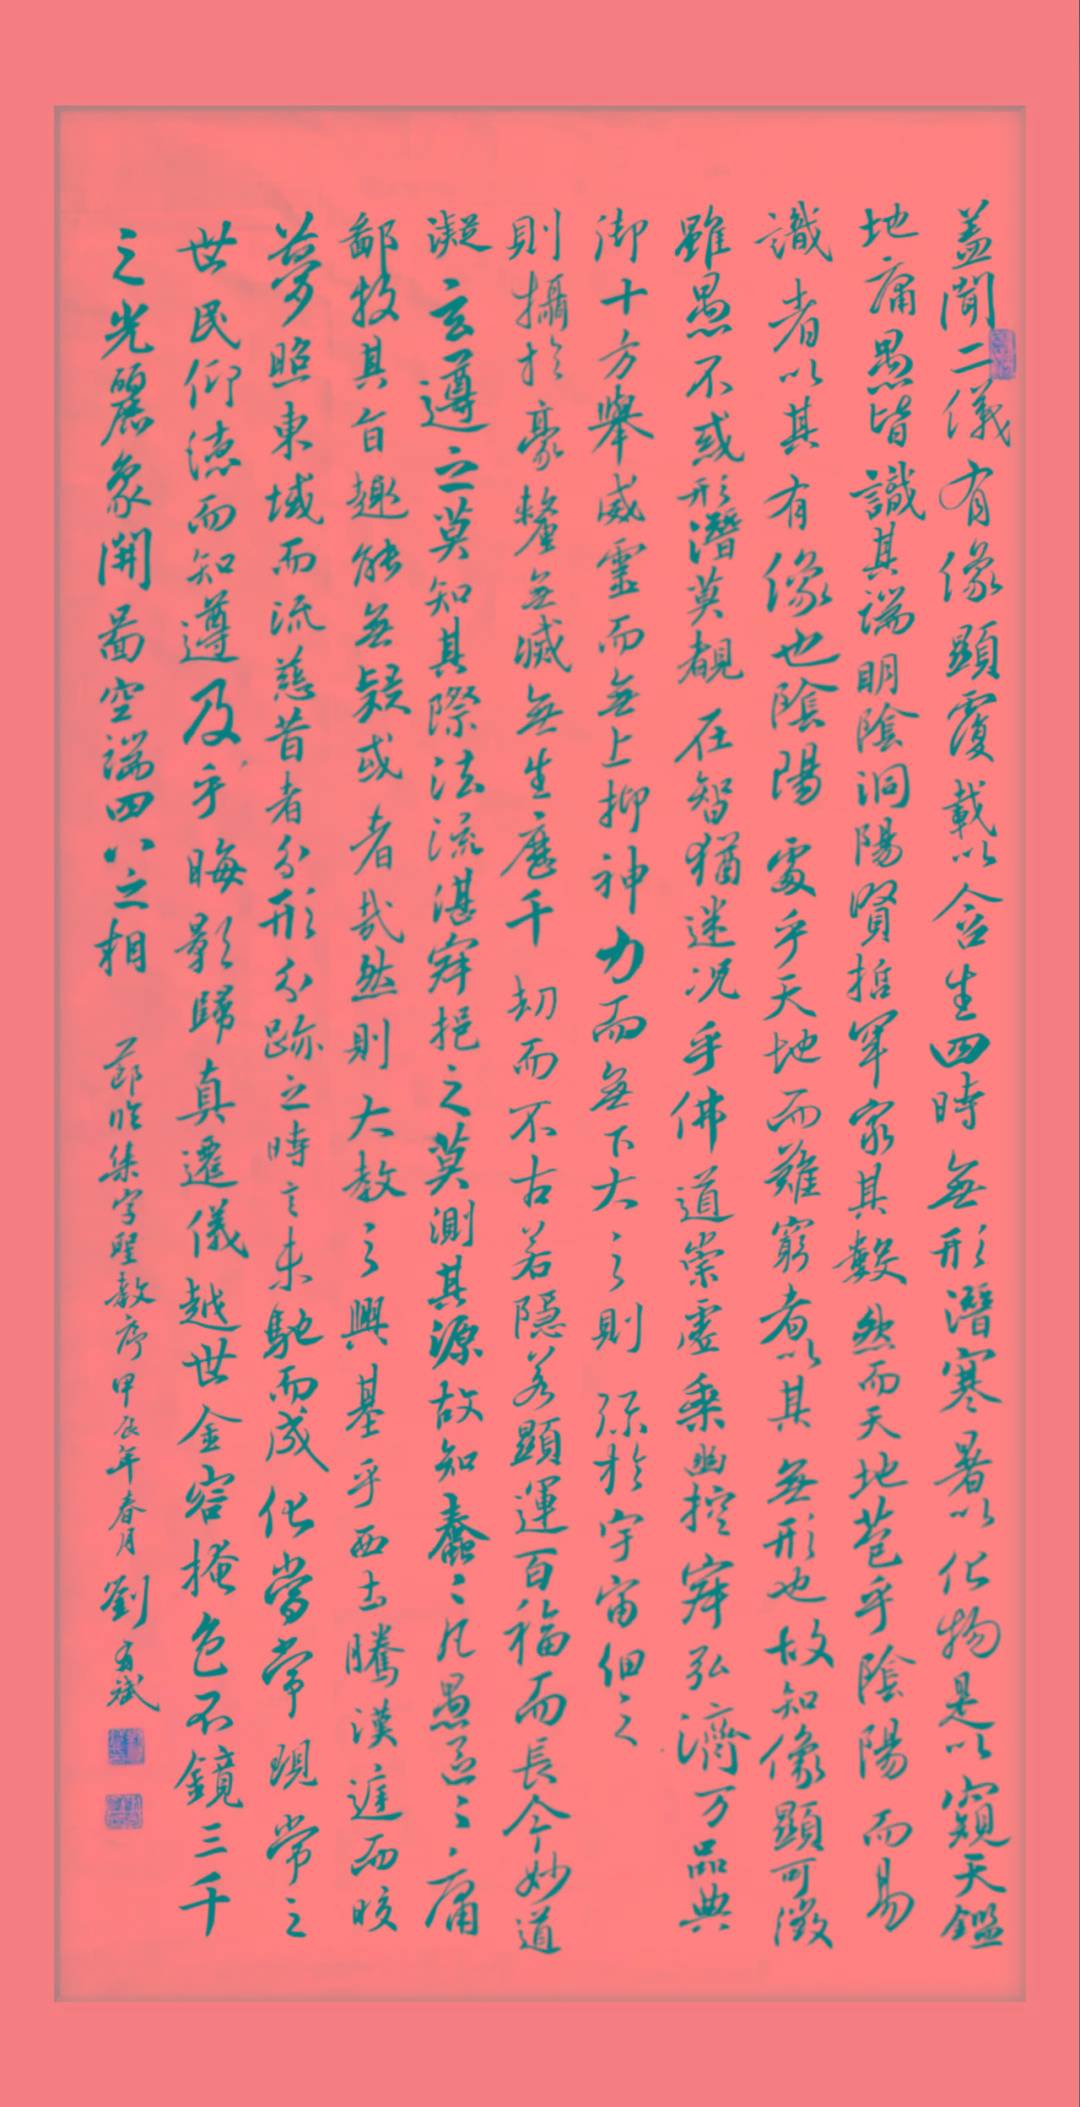 蓋聞二儀有像顯覆載以含生四時無形潛寒暑以化物是以窺天鑑
地庸愚皆識其端明陰洞陽賢哲罕窮其數然而天地苞乎陰陽而易
識者以其有像也陰陽處乎天地而難窮者以其無形也故知像顯可徵
雖愚不惑形潛莫覩在智猶迷况乎佛道崇虛乘幽控寂弘濟万品典
御十方舉威靈而無上抑神力而無下大之則彌於宇宙細之
則攝於豪釐無滅無生歷千劫而不古若隱若顯運百福而長今妙道
凝玄遵之莫知其際法流湛寂挹之莫測其源故知蠢〻凡愚區〻庸
鄙投其旨趣能無疑或者哉然則大教之興基乎西土騰漢庭而皎
夢照東域而流慈昔者分形分跡之時言未馳而成化當常現常之
世民仰德而知遵及乎晦影歸真遷儀越世金容掩色不鏡三千
之光麗象開圖空端四八之相 節臨集字聖教序甲辰年春月劉有斌